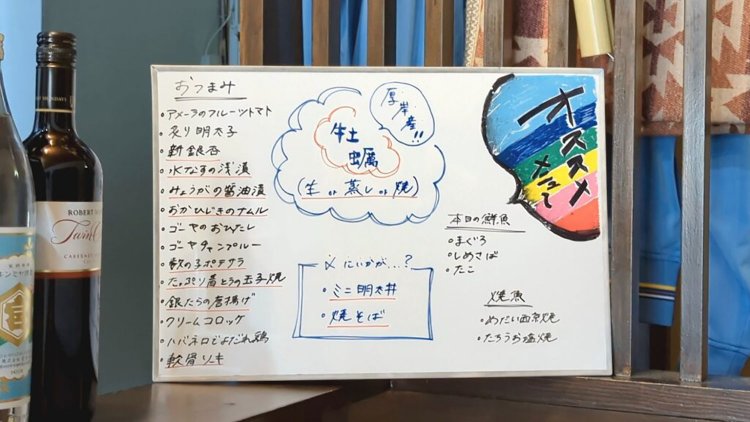 おつまみ
・アメーラのフルーツトマト
・炙り明太子
・新銀杏
・水なすの浅漬
・みょうがの醤油漬
・おかひじきのナムル
・ゴーヤのおひたし
・ゴーヤチャンプルー
・数の子ポテサラ
・たっぷり青とうの玉子焼
・銀たらの唐揚げ
・クリームコロッケ
・ハバネロよだれ鶏
・軟骨ソーキ
厚岸産!!
牡蠣
(生or蒸しor焼)
〆にいかが…?
・ミニ明太丼
・焼そば
オススメ
メニュー
本日の鮮魚
・まぐろ
・しめさば
・たこ
焼魚
・めだい西京焼
・たちうお塩焼
ROBERT
CABERNET